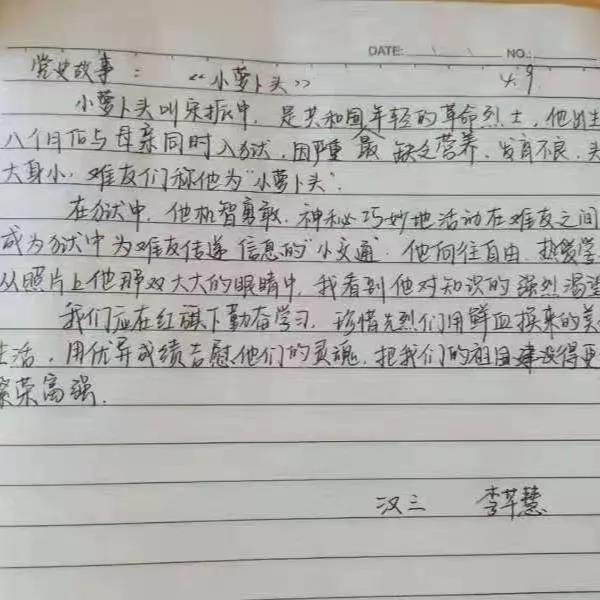 DATE: NO.:
党史故事： “小萝卜头” 4.9
小萝卜头叫宋振中，是共和国年轻的革命烈士，他出生
八个月后与母亲同时入狱，因严重 缺乏营养，发育不良，头
大身小，难友们称他为“小萝卜头”.
在狱中，他机智勇敢，神秘巧妙地活动在难友之间
成为狱中为难友传递信息的“小交通”. 他向往自由，热爱学
从照片上他那双大大的眼睛中，我看到他对知识的强烈渴望
我们应在红旗下勤奋学习，珍惜先烈们用鲜血换来的美
生活，用优异成绩告慰他们的灵魂，把我们的祖国建设得更
繁荣富强.
汉三 李芊慧